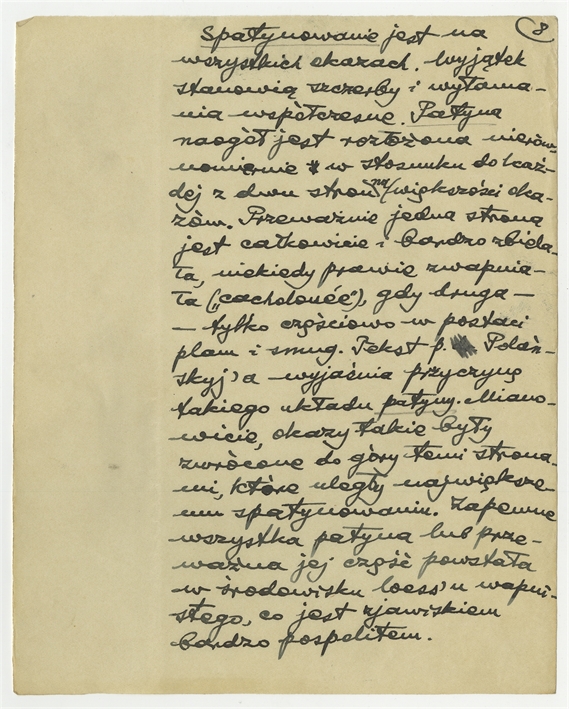 8
Spatynowanie jest na
wszystkich okazach. Wyjątek
stanowią szczerby i wyłama-
nia współczesne. Patyna
naogół jest rozłożona nierów-
nomiernie w stosunku do każ-
dej z dwu stron na większości oka-
zów. Przeważnie jedna strona
jest całkowicie i bardzo zbiela-
ła, niekiedy prawie zwapnia-
ła („cacholonéé”), gdy druga —
— tylko częściowo w postaci
plam i smug. Tekst p. Polań-
skyj'a wyjaśnia przyczynę
takiego układu patyny. Miano-
wicie, okazy takie były
zwrócone do góry temi strona-
mi, które uległy największe-
mu spatynowaniu. Zapewne
wszystka patyna lub prze-
ważna jej część powstała
w środowisku loess'u wapni-
stego, co jest zjawiskiem
bardzo pospolitem.